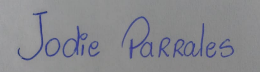 Jodie Parrales